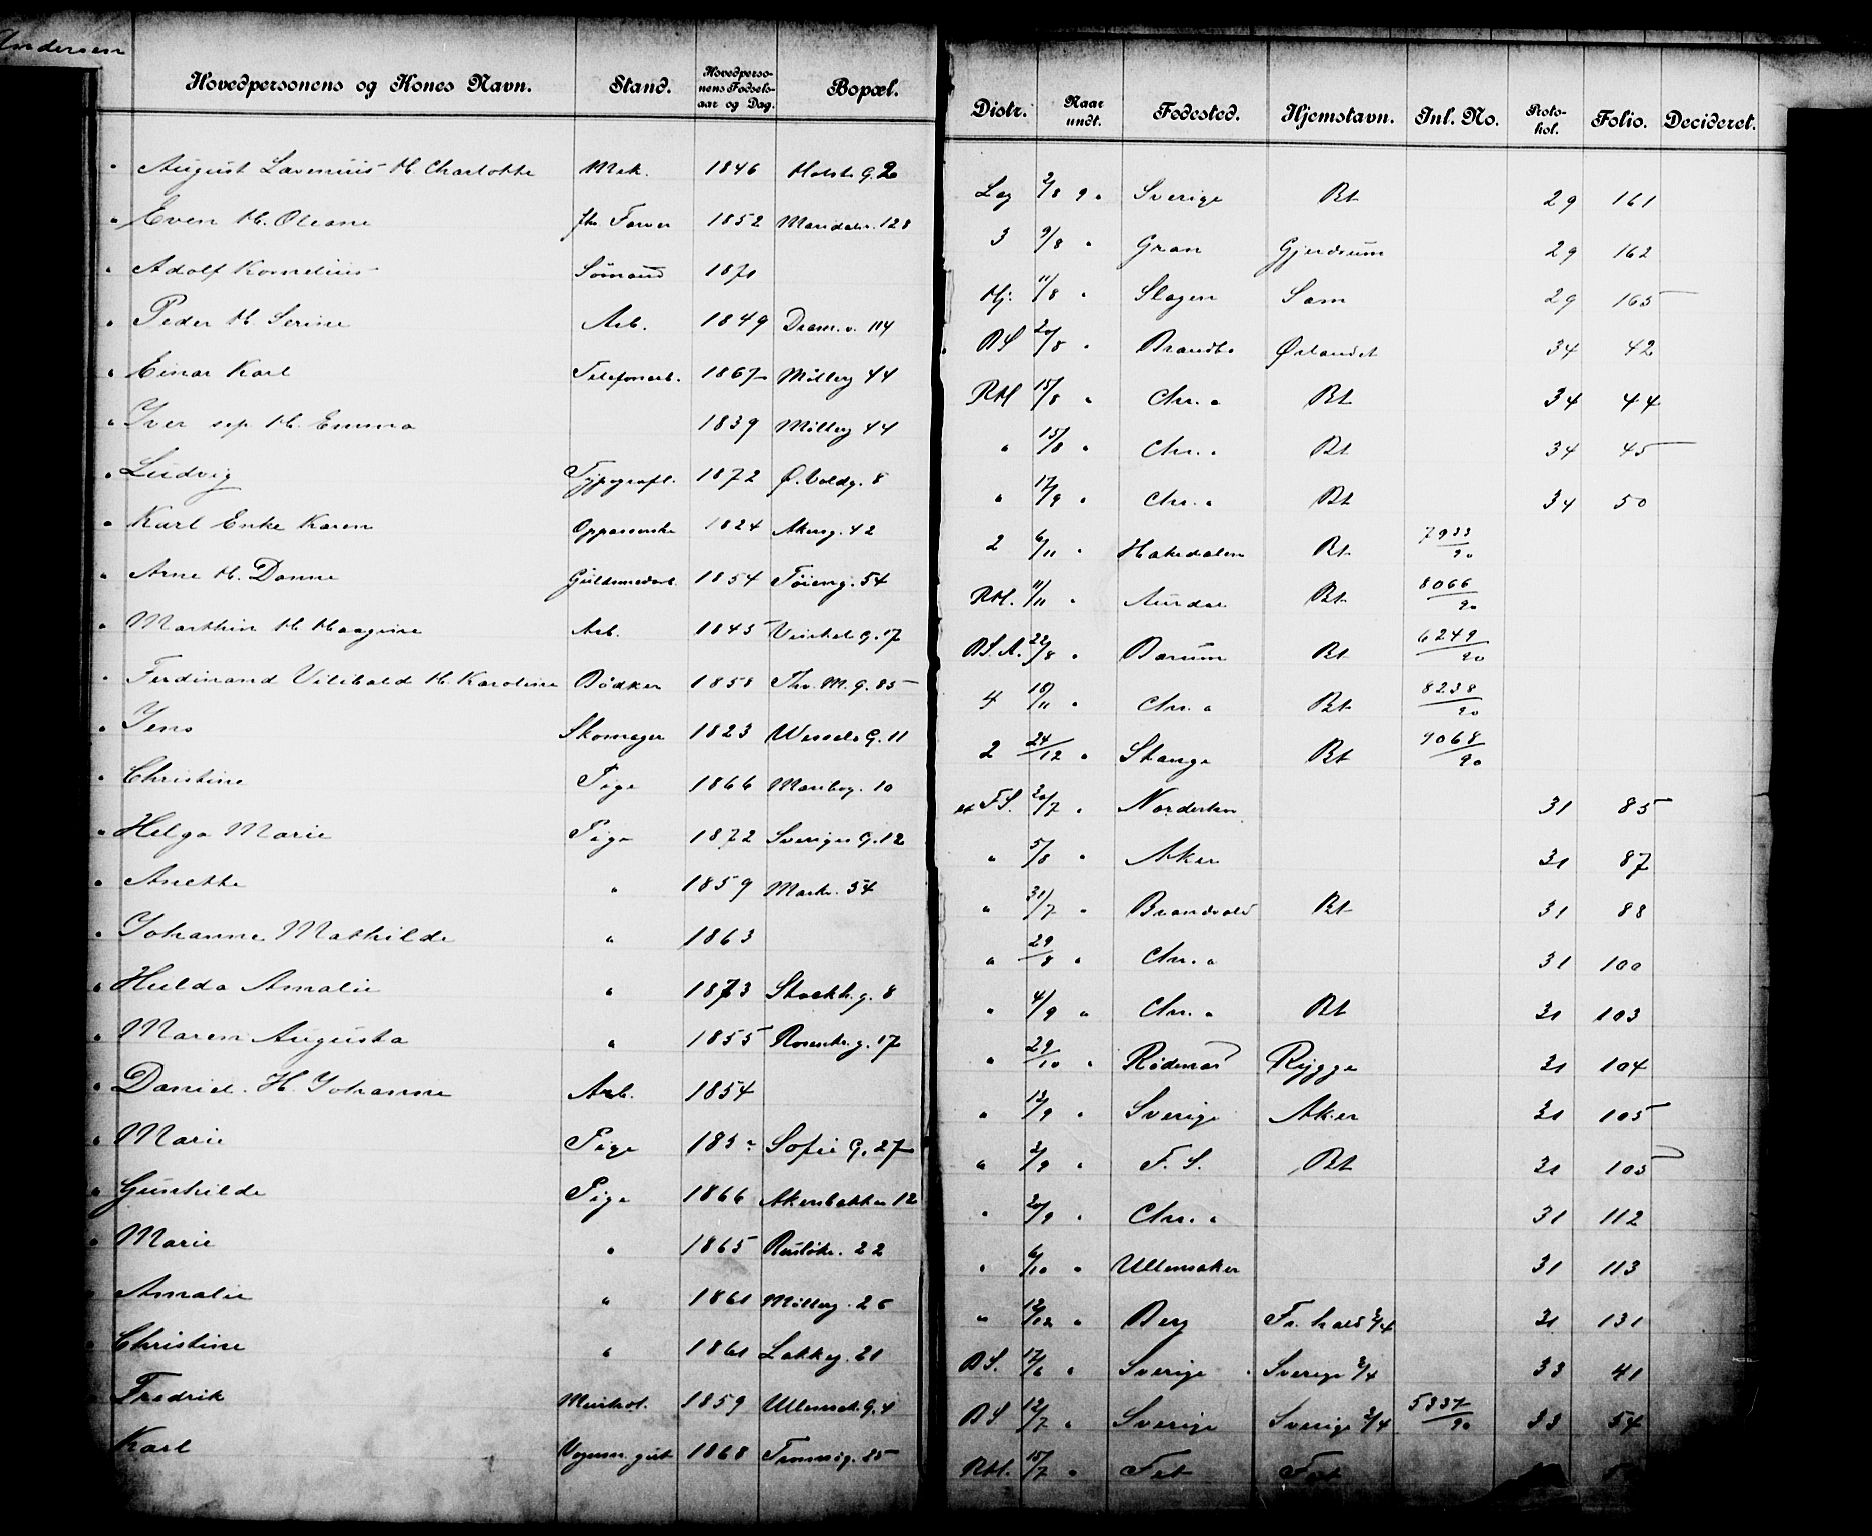 Andersen
Hovedpersonens og Kones Navn. Stand. Hovedpersonens Fødselsaar og Dag. Bopæl. Distr. Naar undt. Fødested. Hjemstavn. Inl. No. Protokol. Folio. Decideret.
" August Lavenius H. Charlotte Mek. 1846 Holsts G. 2 Log 2/8 9 " Sverige Bt 29 161
" Even H. Oleane fhv Farver 1852 Maridalsv. 128 3 9/8 " Gran Gjerdrum 29 162
" Adolf Kornelius Sömand 1871 Hj. 11/8 " Slagen Sam 29 165
" Peder H. Serine Arb. 1849 Dram. v. 114 BS 20/8 " Brandbo Ørlandet 34 42
" Einar Karl Telefonarb. 1867 Mölleg 44 RH 15/8 " Chr. a Bt 34 44
" Iver sep. H. Emma 1839 Mölleg 44 " 15/8 " Chr. a Bt 34 45
" Ludvig Typograf. 1872 Ø. Voldg. 8 " 17/9 " Chr. a Bt 34 50
" Karl Enke Karen Oppasserske 1824 Akersg. 42 2 6/11 " Hakedalen Bt 7933/90
" Arne H. Donne Guldsmedarb. 1854 Töieng. 54 RH. 11/11 " Aurdal Bt 8066/90
" Marthin H. Haagine Arb. 1845 G. 17 BS. A. 22/8 " Bærum Bt 6249/90
" Ferdinand Vilibald H. Karoline Bödker 1858 Thv. M. G. 85 4 18/11 " Chr. a Bt 8238/90
" Jens Skomager 1823 Wessels G. 11 2 24/12 " Stange Bt 9068/90
" Christine Pige 1866 Maribog. 10 FS. 30/7 " 31 85
" Helga Marie Pige 1872 Sveriges G. 12 " 5/8 " Aker 31 87
" Anette " 1859 Markv. 54 " 31/7 " Brandvold Bt 31 88
" Johanne Mathilde " 1863 " 29/8 " Chr. a 31 100
" Hulda Amalie " 1873 Stockh. g. 8 " 4/9 " Chr. a Bt 31 103
" Maren Augusta " 1855 Rosenkr. g. 17 " 29/10 " Rödenæs Rygge 31 104
" Daniel. H. Johanne Arb. 1854 " 12/9 " Sverige Aker 31 105
" Marie Pige Sofie G. 27 " 2/9 " F. S. Bt 31 105
" Gunhilde Pige 1866 Akersbakken 12 " 20/9 " Chr. a 31 112
" Marie " 1865 Rusløkv. 22 " 6/10 " Ullensaker 31 113
" Amalie " 1861 Mölleg. 26 " 12/12 " Berg Fr. hald 2/4 31 131
" Christine " 1861 Lakkeg. 21 BS. 17/6 " Sverige Sverige 2/4 33 41
" Fredrik Murhdl. 1859 Ullensak. G. 4 BS 12/7 " Sverige Sverige 2/4 5337/90 33 54
Karl Vognm. gut 1868 Tromsög. 25 RH. 15/7 " Fet Fet